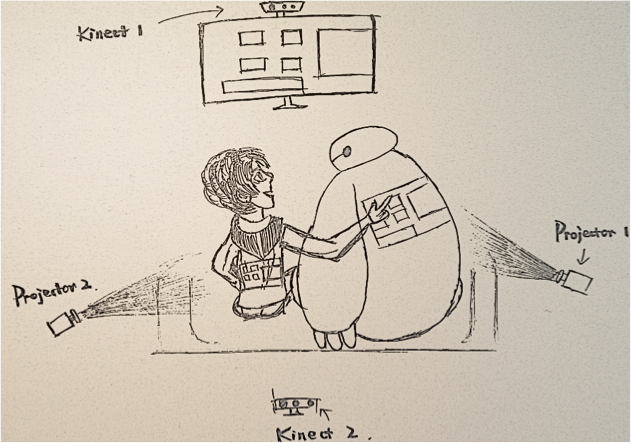 Kinect 1
Projector 1
Projector 2.
Kinect 2.